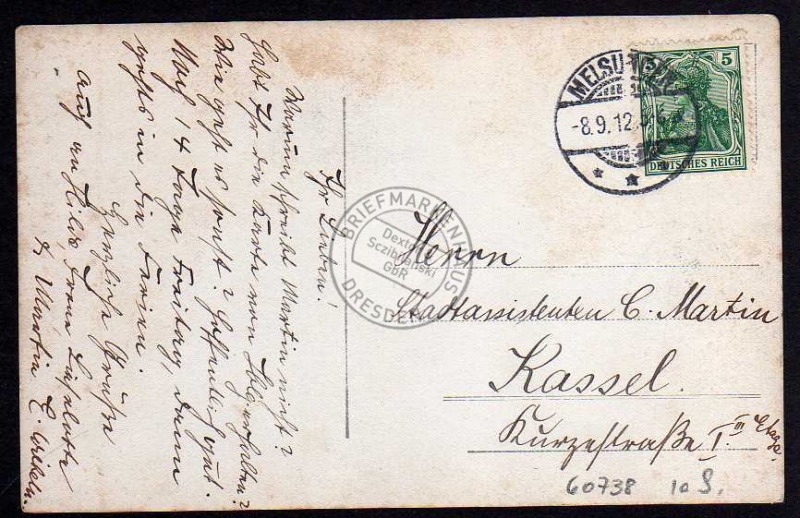 Ihr Lieben!
Warum schreibt Martin nicht?
Habt Ihr die Karte von erhalten?
Wie geht es sonst? Hoffentlich gut.
Noch 14 Tage Freitag, dann
geht's in die Ferien.
Herzliche Grüße
auch an Frau
& Martin E.
MELSUNGEN
-8.9.12.
5
DEUTSCHES REICH
Herrn
Stadtassistenten C. Martin
Kassel.
Kurzestraße I III Etage.
60738 10 S.
BRIEFMARKENHAUS
DRESDEN
GbR